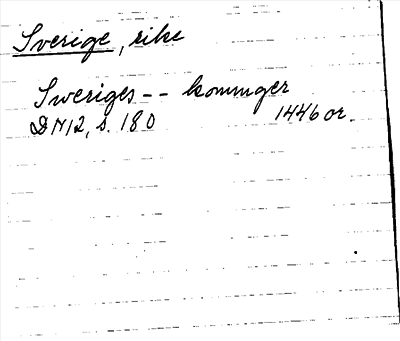 Sverige, rike
Sweriges -- konunger
DN12, s. 180 1446 or.